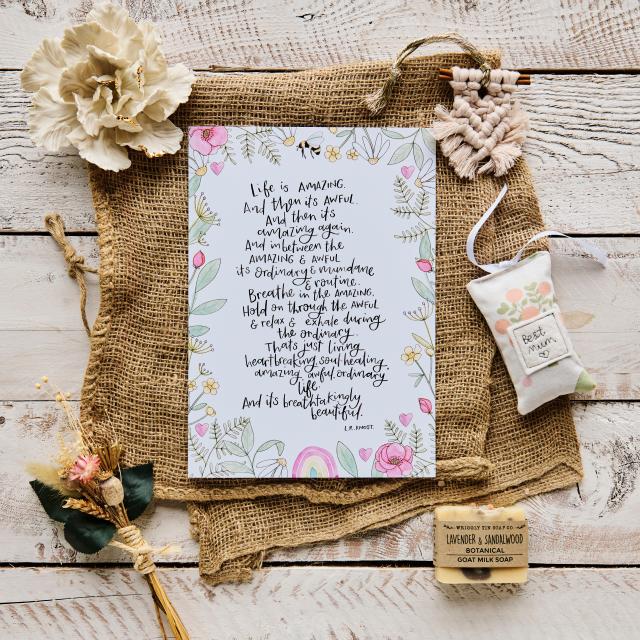 Life is AMAZING.
And then it's AWFUL.
And then it's
amazing again.
And in between the
AMAZING & AWFUL
it's ordinary & mundane
& routine.
Breathe in the AMAZING.
Hold on through the AWFUL
& relax & exhale during
the ordinary.
That's just living
heartbreaking, soul healing,
amazing, awful, ordinary
life.
And it's breathtakingly
beautiful.
L.R. KNOST.
Best
mum
WRIGGLY TIN SOAP CO.
LAVENDER & SANDALWOOD
BOTANICAL
GOAT MILK SOAP